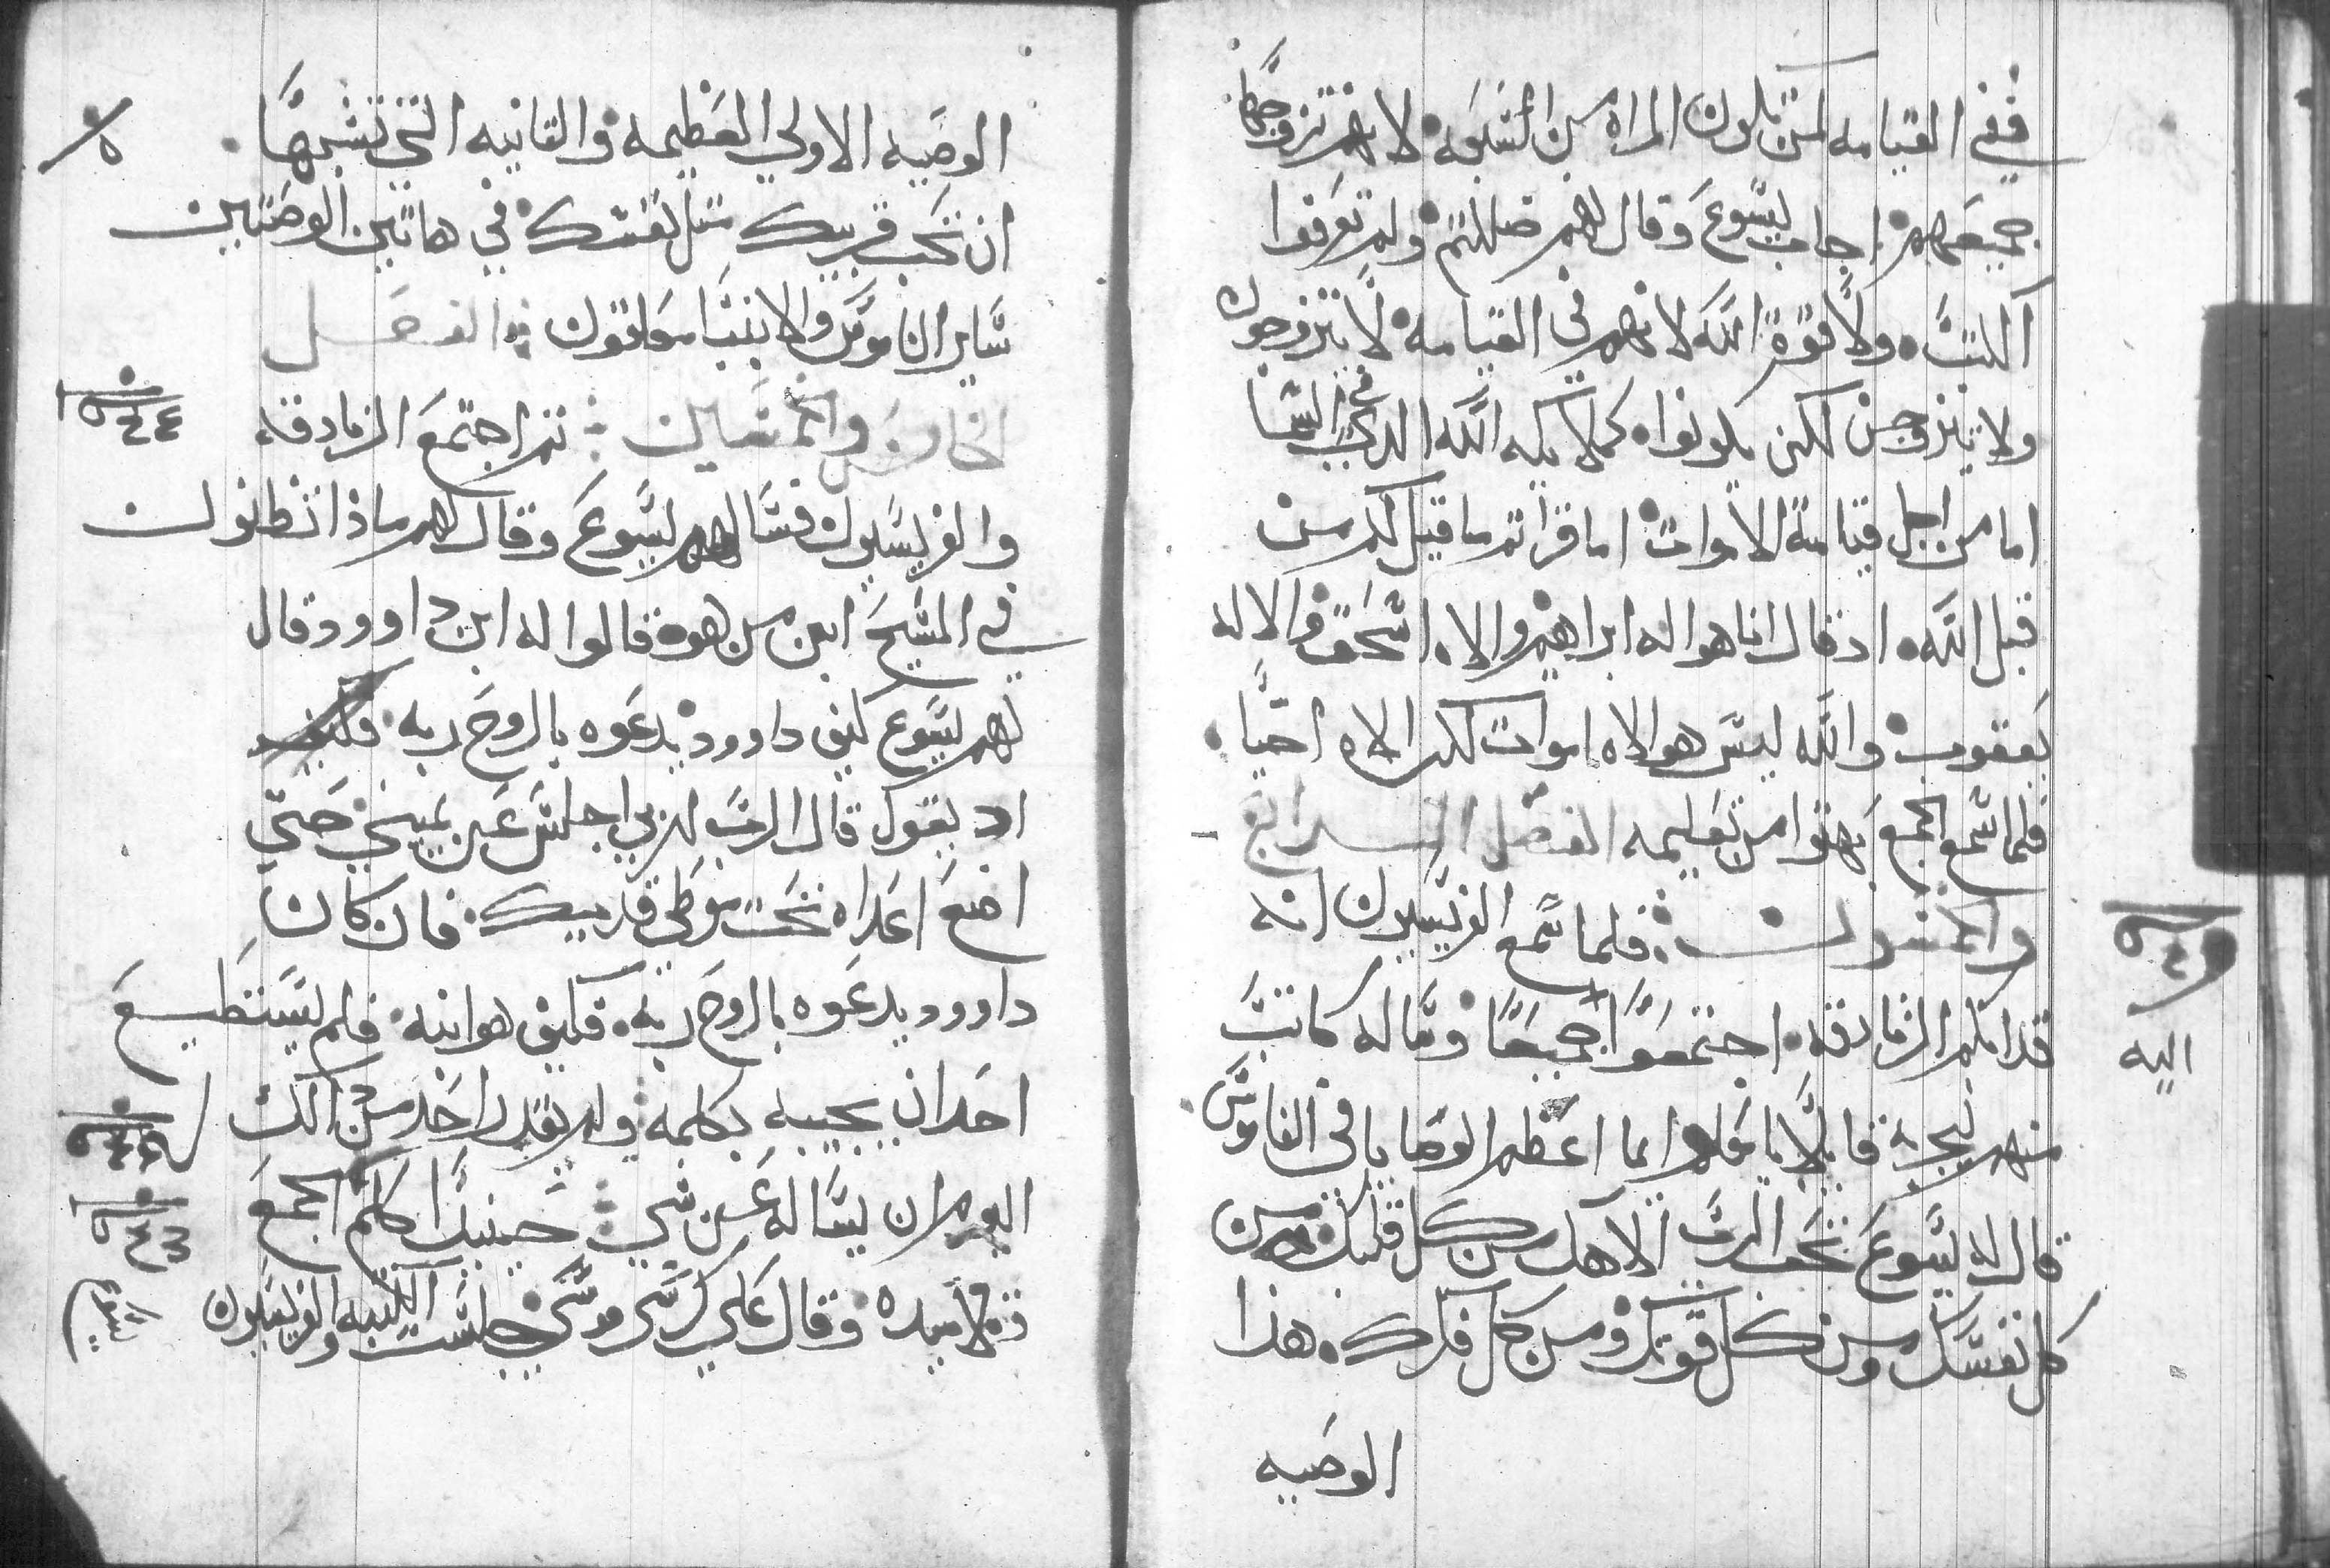 ففي القيامه لمن تكون المراه من السبعه لانهم تزوجها
جميعهم اجاب يسوع وقال لهم ضللتم ولم تعرفوا
الكتب ولا قوة الله لانهم في القيامه لا يتزوجون
ولا يتزوجن لكن يكونوا كملايكه الله الدي في السما
اما من اجل قيامة الاموات اما قراتم ما قيل لكم من
قبل الله اد قال انا هو اله ابراهيم والاه اسحق والاله
يعقوب والله ليس هو الاه اموات لكن الاه احيا
فلما سمع الجمع بهتوا من تعليمه الفصل الرابع
والخمسون فلما سمع الفريسيون انه
قد ابكم الزنادقه اجتمعوا جميعا وساله كاتب
اليه
منهم ليجربه قايلا يا معلم ايما اعظم الوصايا في الناموس
قال له يسوع تحب الرب الاهك من كل قلبك ومن
كل نفسك ومن كل قوتك ومن كل فكرك هذا
الوصيه
الوصيه الاولي العظيمه والتانيه التي تشبهها
ان تحب قريبك متل نفسك في هاتين الوصيتين
ساير الناموس والانبيا معلقون الفصل
الخامس والخمسين تم اجتمع الزنادقه
والفريسيون فسالهم يسوع وقال لهم ماذا تظنون
في المسيح ابن من هو قالوا له ابن داوود قال
لهم يسوع كيف داوود يدعوه بالروح ربه فكيف
اد يقول قال الرب لربي اجلس عن يميني حتي
اضع اعداه تحت موطي قدميك فان كان
داوود يدعوه بالروح ربه فكيف هو ابنه فلم يستطيع
احد ان يجيبه بكلمه ولم يقدر احد من دالك
اليوم ان يساله عن شي حينيد كلم الجمع
وتلاميده وقال علي كرسي موسي جلست الكتبه والفريسيون